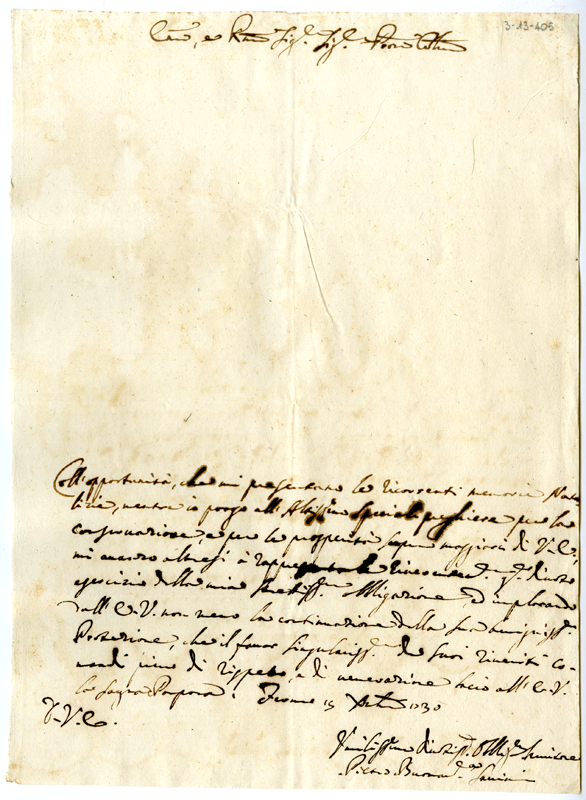 3-13-405
Em.o, e R.mo Sig.r Sig.r P̃rone Col.mo
Coll'opportunità, che mi presentano le ricorrenti memorie Nata
lizie, mentre io porgo all'Altissimo speciali preghiere per la
conservazione, e per le prosperità sempre maggiori di V. E.,
mi avanzo altresì à rappresentarle
esercizio della mia Obligazione, ed implorando
dall'E. V. non meno la continuazione della sua
Protezione, che il favor singolariss.o de suoi riveriti co-
mandi pieno di rispetto, e di venerazione bacio all'E. V.
la Sagra Porpora. 15 1730
D. V. E.
Umilissimo Divotiss.o Oblig.o Servitore
Pietro